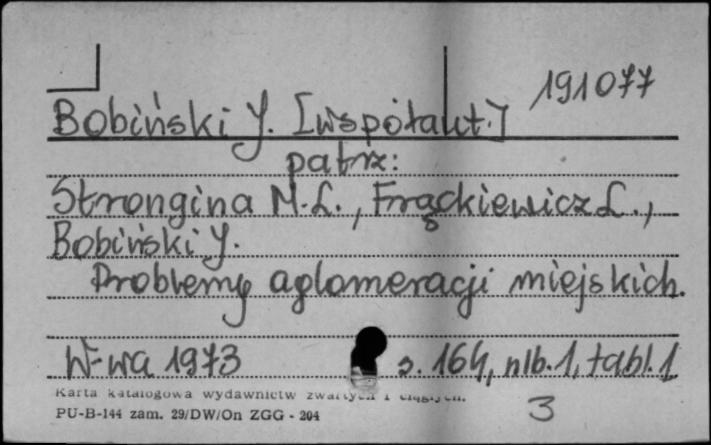 191077
Bobiński J. [współaut.]
patrz:
Strongina M.L., Frąckiewicz L.,
Bobiński J.
Problemy aglomeracji miejskich.
W-wa 1973 s. 164, nlb. 1, tabl. 1
Karta katalogowa wydawnictw zwartych i ciągłych.
PU-B-144 zam. 29/DW/On ZGG - 204
3